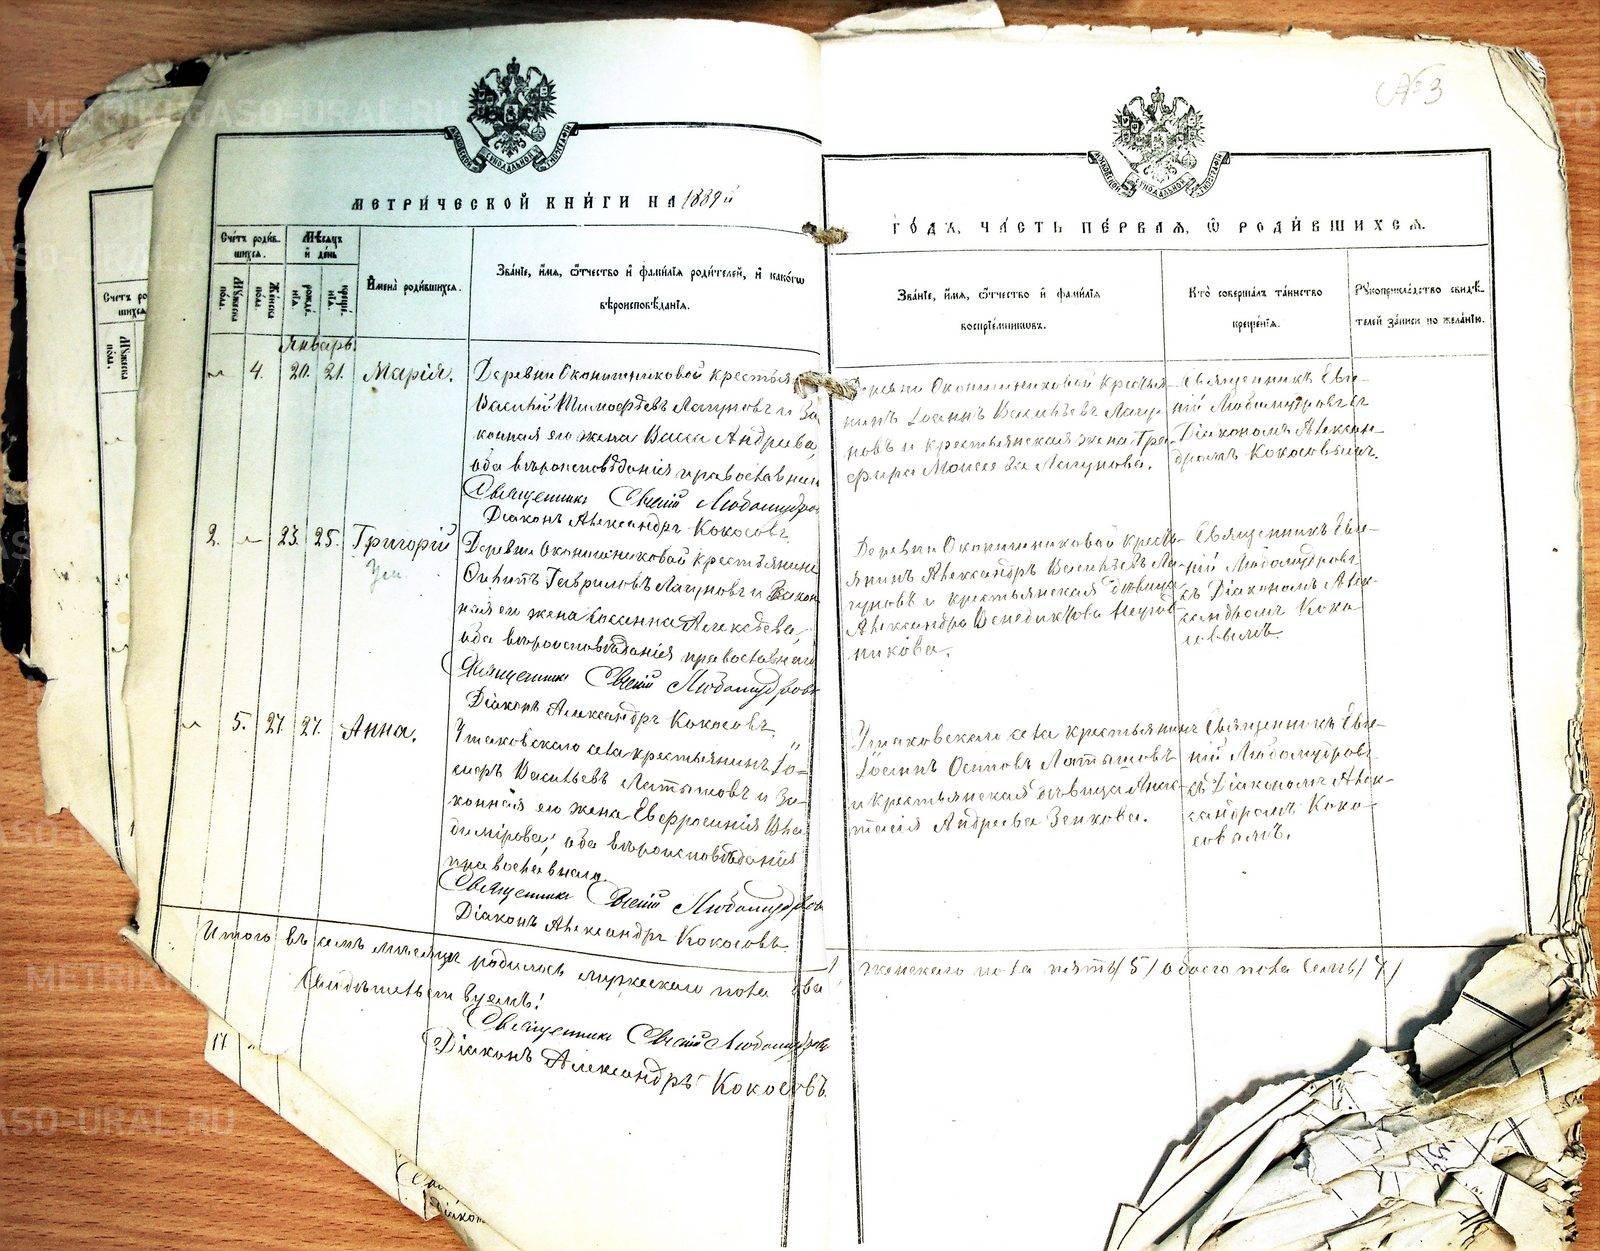 METRIKI.GASO-URAL.RU
№ 3
МОСКОВСКОЙ СИНОДАЛЬНОЙ ТИПОГРАФІИ
МОСКОВСКОЙ СИНОДАЛЬНОЙ ТИПОГРАФІИ
МЕТРИ́ЧЕСКОЙ КНИ́ГИ НА 1889й
ГО́ДЪ, ЧА́СТЬ ПЕ́РВАЯ, Ѿ РОДИ́ВШИХСЯ.
Сче́тъ роди́в-
шихся.
Мѣ́сяцъ
и́ де́нь
Му́жеска по́ла.
Же́нска по́ла.
рожде́-
нія.
креще́-
нія.
И҆мена̀ роди́вшихся.
Зва́ніе, и҆́мя, ѻ҆́тчество и҆ фами́лія роди́телей, и҆ како́гѡ
вѣроисповѣ́данія.
Зва́ніе, и҆́мя, ѻ҆́тчество и҆ фами́лія
воспріе́мниковъ.
Кто̀ соверша́лъ та́инство
креще́нія.
Рꙋкоприкла́дство свидѣ́-
телей за́писи по жела́нію.
Январь.
4. 20. 21. Марія.
Деревни Оконишниковой крестья
Василій Тимофѣевъ Лагуновъ и за
конная его жена Васса Андреева,
оба вѣроисповѣданія православнаго
Священникъ Евгеній Любомудровъ
Діаконъ Александръ Кокосовъ
Деревни Оконишниковой крестья-
нинъ Іоаннъ Васильевъ Лагу-
новъ и крестьянская жена
Моисеева Лагунова.
Священникъ Евге-
ній Любомудровъ съ
Діакономъ Алексан-
дромъ Кокосовымъ.
2. 23. 25. Григорій
Деревни Оконишниковой крестьянинъ
Гавриловъ Лагуновъ и закон
ная его жена Сосанна Алексѣева,
оба вѣроисповѣданія православнаго
Священникъ Евгеній Любомудровъ
Діаконъ Александръ Кокосовъ.
Деревни Оконишниковой кресть-
янинъ Александръ Васильевъ Ла-
гуновъ и крестьянская дѣвица
Александра Венедиктова
никова.
Священникъ Евге-
ній Любомудровъ
съ Діакономъ Алек-
сандромъ Коко
совымъ.
5. 27. 27. Анна.
Ушаковскаго села крестьянинъ Іо-
сифъ Васильевъ Латышовъ и за-
конная его жена Евфросинія Вла
димірова, оба вѣроисповѣданія
православнаго.
Священникъ Евгеній Любомудровъ
Діаконъ Александръ Кокосовъ
Ушаковскаго села крестьянинъ
Іоаннъ Осиповъ Латышовъ
и крестьянская дѣвица Анас-
тасія Андреева Зенкова.
Священникъ Евге-
ній Любомудровъ
съ Діакономъ Алек-
сандромъ Коко-
совымъ.
Итого въ семъ мѣсяцѣ родилось мужескаго пола два
женскаго пола пять /5/ обоего пола семь /7/
Свидѣтельствуемъ:
Священникъ Евгеній Любомудровъ
Діаконъ Александръ Кокосовъ.
17